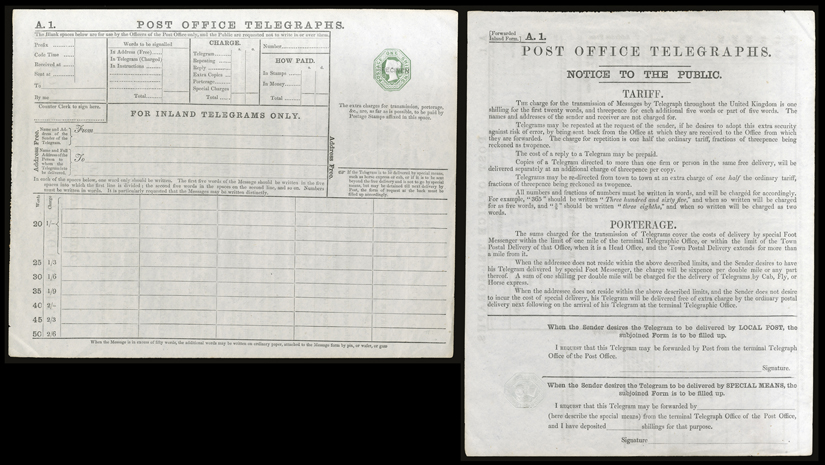 A. 1. POST OFFICE TELEGRAPHS.
The Blank spaces below are for use by the Officers of the Post Office only, and the Public are requested not to write in or over them.
Prefix
Code Time
Received at
Sent at
To
By me
Words to be signalled
In Address (Free)
In Telegram (Charged)
In Instructions
Total
CHARGE.
Telegram
Repeating
Reply
Extra Copies
Porterage
Special Charges
Total
Number
HOW PAID.
In Stamps
In Money
Total
The extra charges for transmission, porterage,
&c., are, as far as is possible, to be paid by
Postage Stamps affixed in this space.
Counter Clerk to sign here.
FOR INLAND TELEGRAMS ONLY.
Address Free.
Name and Ad-
dress of the
Sender of the
Telegram.
From
Name and Full
Address of the
Person to
whom the
Telegram is to
be delivered.
To
Address Free.
If the Telegram is to be delivered by special means,
such as horse express or cab, or if it is to be sent
beyond the free delivery and is not to go by special
means, but may be detained till next delivery by
Post, the form of request at the back must be
filled up accordingly.
In each of the spaces below, one word only should be written. The first five words of the Message should be written in the five
spaces into which the first line is divided; the second five words in the spaces on the second line, and so on. Numbers
must be written in words. It is particularly requested that the Messages may be written distinctly.
Words
Charge
20 1/-
25 1/3
30 1/6
35 1/9
40 2/-
45 2/3
50 2/6
When the Message is in excess of fifty words, the additional words may be written on ordinary paper, attached to the Message form by pin, or wafer, or gum
[Forwarded
Inland Form.] A. 1.
POST OFFICE TELEGRAPHS.
NOTICE TO THE PUBLIC.
TARIFF.
THE charge for the transmission of Messages by Telegraph throughout the United Kingdom is one
shilling for the first twenty words, and threepence for each additional five words or part of five words. The
names and addresses of the sender and receiver are not charged for.
Telegrams may be repeated at the request of the sender, if he desires to adopt this extra security
against risk of error, by being sent back from the Office at which they are received to the Office from which
they are forwarded. The charge for repetition is one half the ordinary tariff, fractions of threepence being
reckoned as twopence.
The cost of a reply to a Telegram may be prepaid.
Copies of a Telegram directed to more than one firm or person in the same free delivery, will be
delivered separately at an additional charge of threepence per copy.
Telegrams may be re-directed from town to town at an extra charge of one half the ordinary tariff,
fractions of threepence being reckoned as twopence.
All numbers and fractions of numbers must be written in words, and will be charged for accordingly.
For example, "365" should be written "Three hundred and sixty five," and when so written will be charged
for as five words, and "⅜" should be written "three eighths," and when so written will be charged as two
words.
PORTERAGE.
The sums charged for the transmission of Telegrams cover the costs of delivery by special Foot
Messenger within the limit of one mile of the terminal Telegraphic Office, or within the limit of the Town
Postal Delivery of that Office, when it is a Head Office, and the Town Postal Delivery extends for more than
a mile from it.
When the addressee does not reside within the above described limits, and the Sender desires to have
his Telegram delivered by special Foot Messenger, the charge will be sixpence per double mile or any part
thereof. A sum of one shilling per double mile will be charged for the delivery of Telegrams by Cab, Fly, or
Horse express.
When the addressee does not reside within the above described limits, and the Sender does not desire
to incur the cost of special delivery, his Telegram will be delivered free of extra charge by the ordinary postal
delivery next following on the arrival of his Telegram at the terminal Telegraphic Office.
When the Sender desires the Telegram to be delivered by LOCAL POST, the
subjoined Form is to be filled up.
I REQUEST that this Telegram may be forwarded by Post from the terminal Telegraph
Office of the Post Office.
Signature.
When the Sender desires the Telegram to be delivered by SPECIAL MEANS, the
subjoined Form is to be filled up.
I REQUEST that this Telegram may be forwarded by
(here describe the special means) from the terminal Telegraph Office of the Post Office,
and I have deposited shillings for that purpose.
Signature